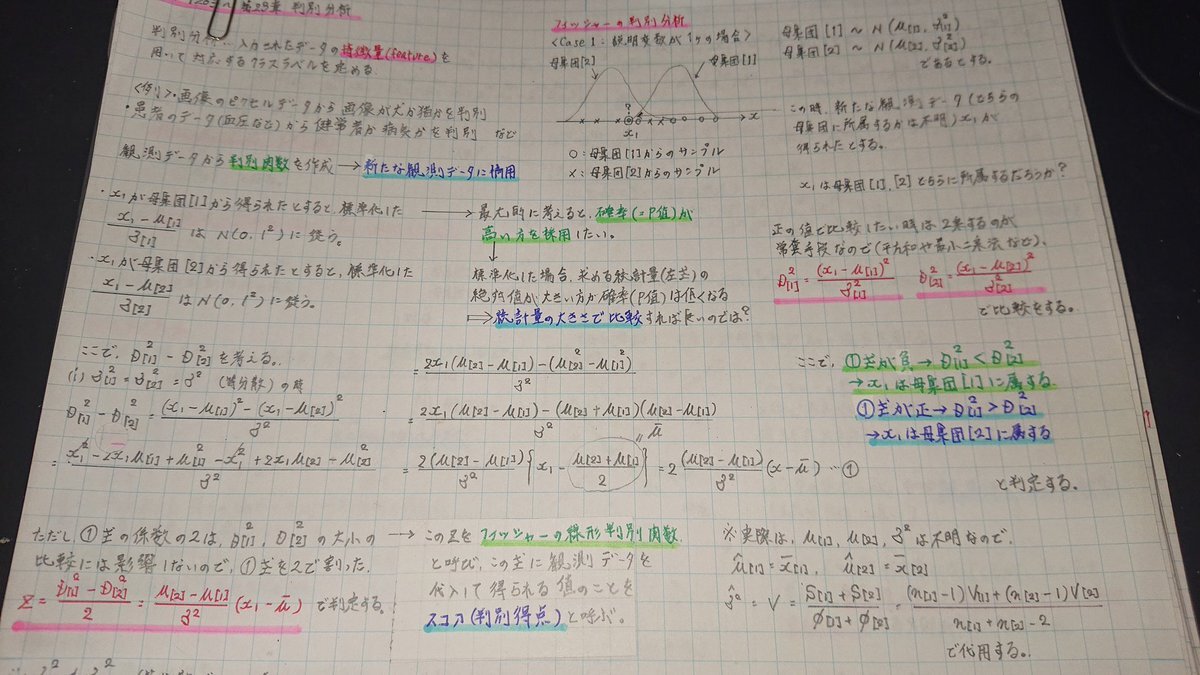 第23章 判別分析
判別分析…入力されたデータの特徴量(feature)を
用いて対応するクラスラベルを定める。
<例>・画像のピクセルデータから画像が犬か猫かを判別
・患者のデータ(血圧など)から健常者か病気かを判別 など
観測データから判別関数を作成→新たな観測データに適用
フィッシャーの判別分析
<Case 1:説明変数が1つの場合>
母集団[2] 母集団[1]
? x
x₁
○:母集団[1]からのサンプル
×:母集団[2]からのサンプル
母集団[1] ~ N(μ[1], σ²[1])
母集団[2] ~ N(μ[2], σ²[2])
であるとする。
この時、新たな観測データ(どちらの
母集団に所属するかは不明)x₁が
得られたとする。
x₁は母集団[1],[2]どちらに所属するだろうか?
・x₁が母集団[1]から得られたとすると、標準化した
(x₁-μ[1])/σ[1] はN(0, 1²)に従う。
・x₁が母集団[2]から得られたとすると、標準化した
(x₁-μ[2])/σ[2] はN(0, 1²)に従う。
→最尤的に考えると、確率(=P値)が
高い方を採用したい。
↓
標準化した場合、求める統計量(左式)の
絶対値が大きい方が確率(P値)は低くなる
⇒統計量の大きさで比較すれば良いのでは?
正の値で比較したい時は2乗するのが
常套手段なので(平方和や最小二乗法など)、
D²[1] = (x₁-μ[1])²/σ²[1] D²[2] = (x₁-μ[2])²/σ²[2]
で比較をする。
ここで、D²[1] - D²[2]を考える。
(i) σ²[1] = σ²[2] = σ² (等分散)の時
D²[1] - D²[2] = {(x₁-μ[1])² - (x₁-μ[2])²}/σ²
= (x₁² - 2x₁μ[1] + μ²[1] - x₁² + 2x₁μ[2] - μ²[2])/σ²
= {2x₁(μ[2]-μ[1]) - (μ²[2]-μ²[1])}/σ²
= {2x₁(μ[2]-μ[1]) - (μ[2]+μ[1])(μ[2]-μ[1])}/σ²
= 2(μ[2]-μ[1])/σ² {x₁ - (μ[2]+μ[1])/2} = 2(μ[2]-μ[1])/σ² (x-μ̄) …①
= μ̄
ここで、①式が負→D²[1] < D²[2]
→x₁は母集団[1]に属する
①式が正→D²[1] > D²[2]
→x₁は母集団[2]に属する
と判定する。
ただし、①式の係数の2は、D²[1], D²[2]の大小の
比較には影響しないので、①式を2で割った
Z = (D²[1]-D²[2])/2 = (μ[2]-μ[1])/σ² (x₁-μ̄) で判定する。
→このZをフィッシャーの線形判別関数
と呼び、この式に観測データを
代入して得られる値のことを
スコア(判別得点)と呼ぶ。
※実際は、μ[1], μ[2], σ²は不明なので、
μ̂[1] = x̄[1], μ̂[2] = x̄[2]
σ̂² = V = (S[1]+S[2])/(φ[1]+φ[2]) = {(n[1]-1)V[1]+(n[2]-1)V[2]}/(n[1]+n[2]-2)
で代用する。